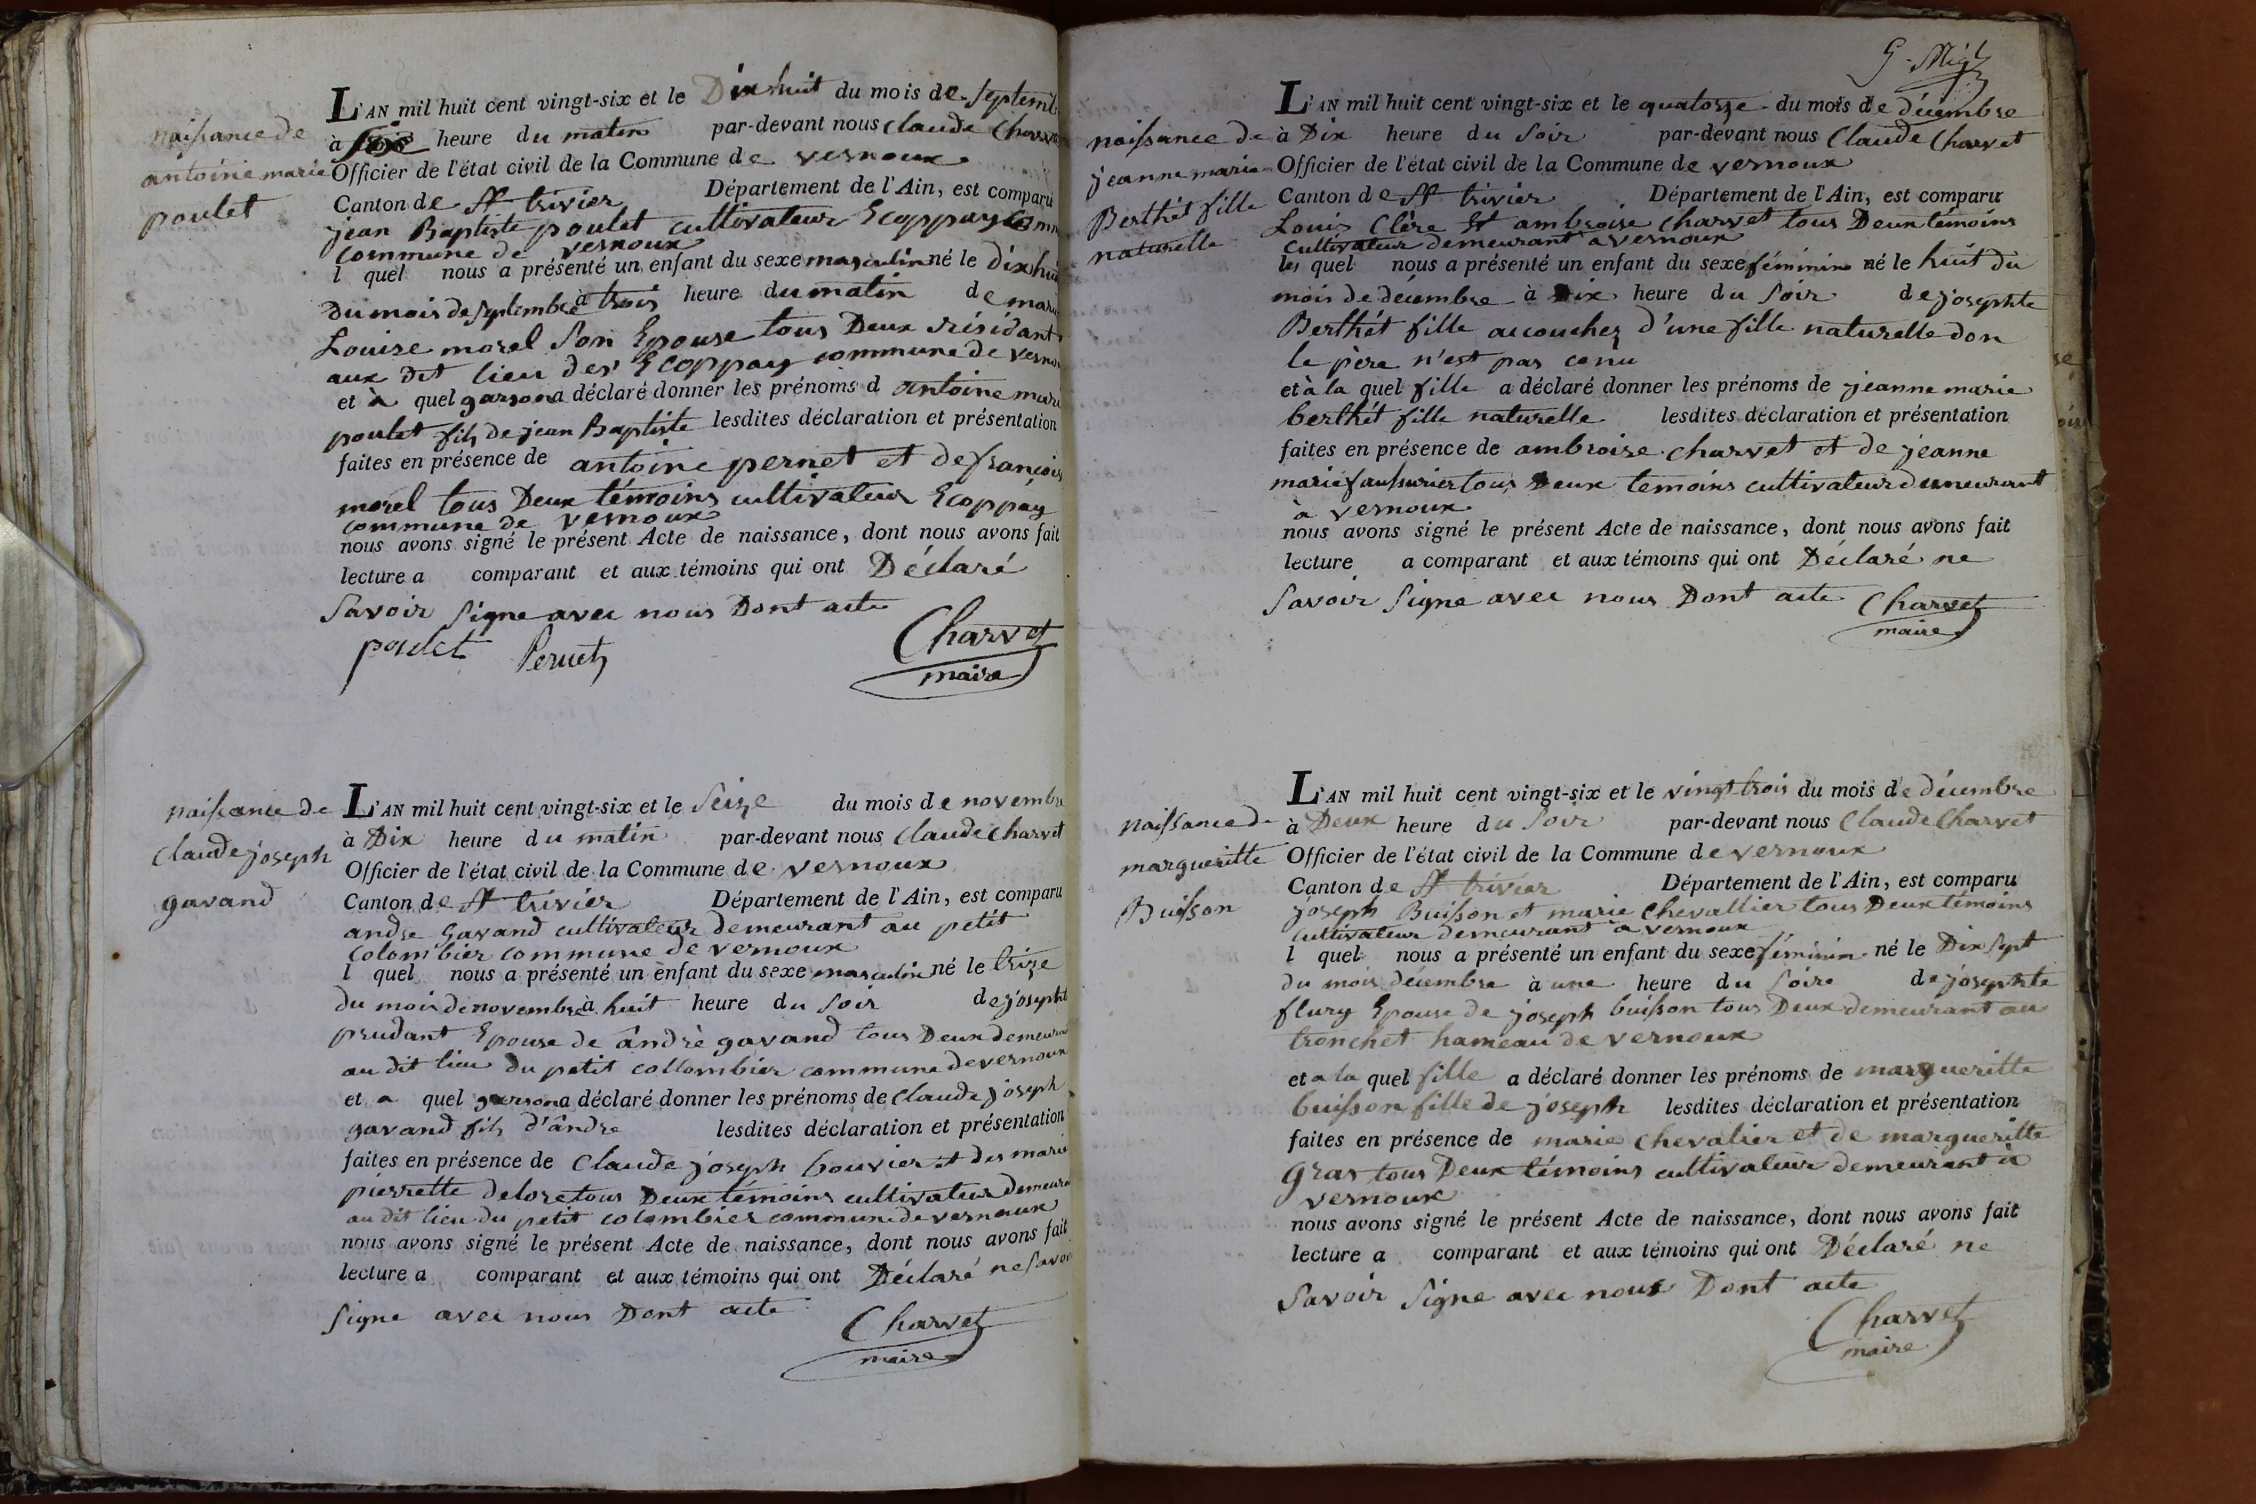 naissance de
antoine marie
poulet
L'AN mil huit cent vingt-six et le Dix huit du mois de Septemb
à heure du matin par-devant nous Claude Charv
Officier de l'état civil de la Commune de vernoux
Canton de St trivier Département de l'Ain, est comparu
jean Baptiste poulet cultivateur Ecoppay
commune de vernoux
l quel nous a présenté un enfant du sexe masculin né le dix hui
Du mois de Septembre à trois heure du matin de mari
Louise morel Son Epouse tous Deux résidant
aux Dit lieu des Ecoppay commune de verno
et à quel garson a déclaré donner les prénoms d antoine mari
poulet fils de jean Baptiste lesdites déclaration et présentation
faites en présence de antoine pernet et de françois
morel tous Deux témoins cultivateur Ecoppay
commune de vernoux
nous avons signé le présent Acte de naissance, dont nous avons fait
lecture a comparant et aux témoins qui ont Déclaré
Savoir Signe avec nous Dont acte
poulet Pernet Charvet
maire
naissance de
Claude joseph
gavand
L'AN mil huit cent vingt-six et le Seize du mois de novembre
à Dix heure du matin par-devant nous Claude Charvet
Officier de l'état civil de la Commune de vernoux
Canton de St trivier Département de l'Ain, est comparu
andre gavand cultivateur demeurant au petit
Colombier commune de vernoux
l quel nous a présenté un enfant du sexe masculin né le trize
du mois de novembre à huit heure du Soir de josepht
prudant Epouse de andrè gavand tous Deux demeura
au dit lieu du petit collombier commune de vernoux
et a quel garson a déclaré donner les prénoms de Claude joseph
gavand fils d'andre lesdites déclaration et présentation
faites en présence de Claude joseph bouvier et des marie
pierrette delore tous Deux témoins cultivateur Demeura
au dit lieu du petit colombier commune de vernoux
nous avons signé le présent Acte de naissance, dont nous avons fait
lecture a comparant et aux témoins qui ont Déclaré ne Savoi
Signe avec nous Dont acte
Charvet
maire
naissance de
jeanne marie
Berthét fille
naturelle
L'AN mil huit cent vingt-six et le quatorze du mois de décembre
à Dix heure du Soir par-devant nous Claude Charvet
Officier de l'état civil de la Commune de vernoux
Canton de St trivier Département de l'Ain, est comparu
Louis Clère Et ambroise Charvet tous Deux témoins
cultivateur demeurant a vernoux
les quel nous a présenté un enfant du sexe féminin né le huit du
mois de décembre à Dix heure du Soir de josephte
Berthét fille accouchez d'une fille naturelle don
le père n'est pas conu
et à la quel fille a déclaré donner les prénoms de jeanne marie
berthét fille naturelle lesdites déclaration et présentation
faites en présence de ambroise Charvet et de jeanne
marie tous Deux temoins cultivateur demeurant
à vernoux
nous avons signé le présent Acte de naissance, dont nous avons fait
lecture a comparant et aux témoins qui ont Déclaré ne
Savoir Signe avec nous Dont acte Charvet
maire
naissance de
margueritte
Buisson
L'AN mil huit cent vingt-six et le vingt trois du mois de décembre
à Deux heure du Soir par-devant nous Claude Charvet
Officier de l'état civil de la Commune de vernoux
Canton de St trivier Département de l'Ain, est comparu
joseph Buisson et marie Chevallier tous Deux témoins
cultivateur demeurant à vernoux
l quel nous a présenté un enfant du sexe féminin né le Dix Sept
du mois décembre à une heure du Soire de josephte
flury Epouse de joseph buisson tous Deux demeurant au
tronchet hameau de vernoux
et a la quel fille a déclaré donner les prénoms de margueritte
buisson fille de joseph lesdites déclaration et présentation
faites en présence de marie Chevalier et de margueritte
gras tous Deux témoins cultivateur demeurant à
vernoux
nous avons signé le présent Acte de naissance, dont nous avons fait
lecture a comparant et aux témoins qui ont Déclaré ne
Savoir Signe avec nous Dont acte
Charvet
maire